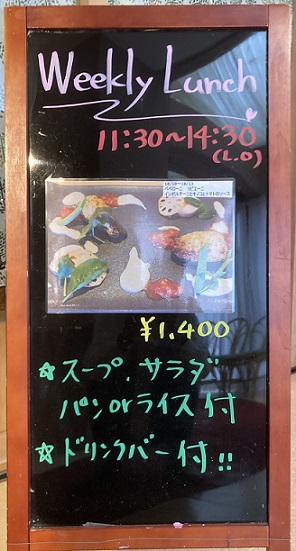 Weekly Lunch
11:30~14:30
(L.O)
¥1.400
☆スープ、サラダ
パンorライス付
☆ドリンクバー付!!